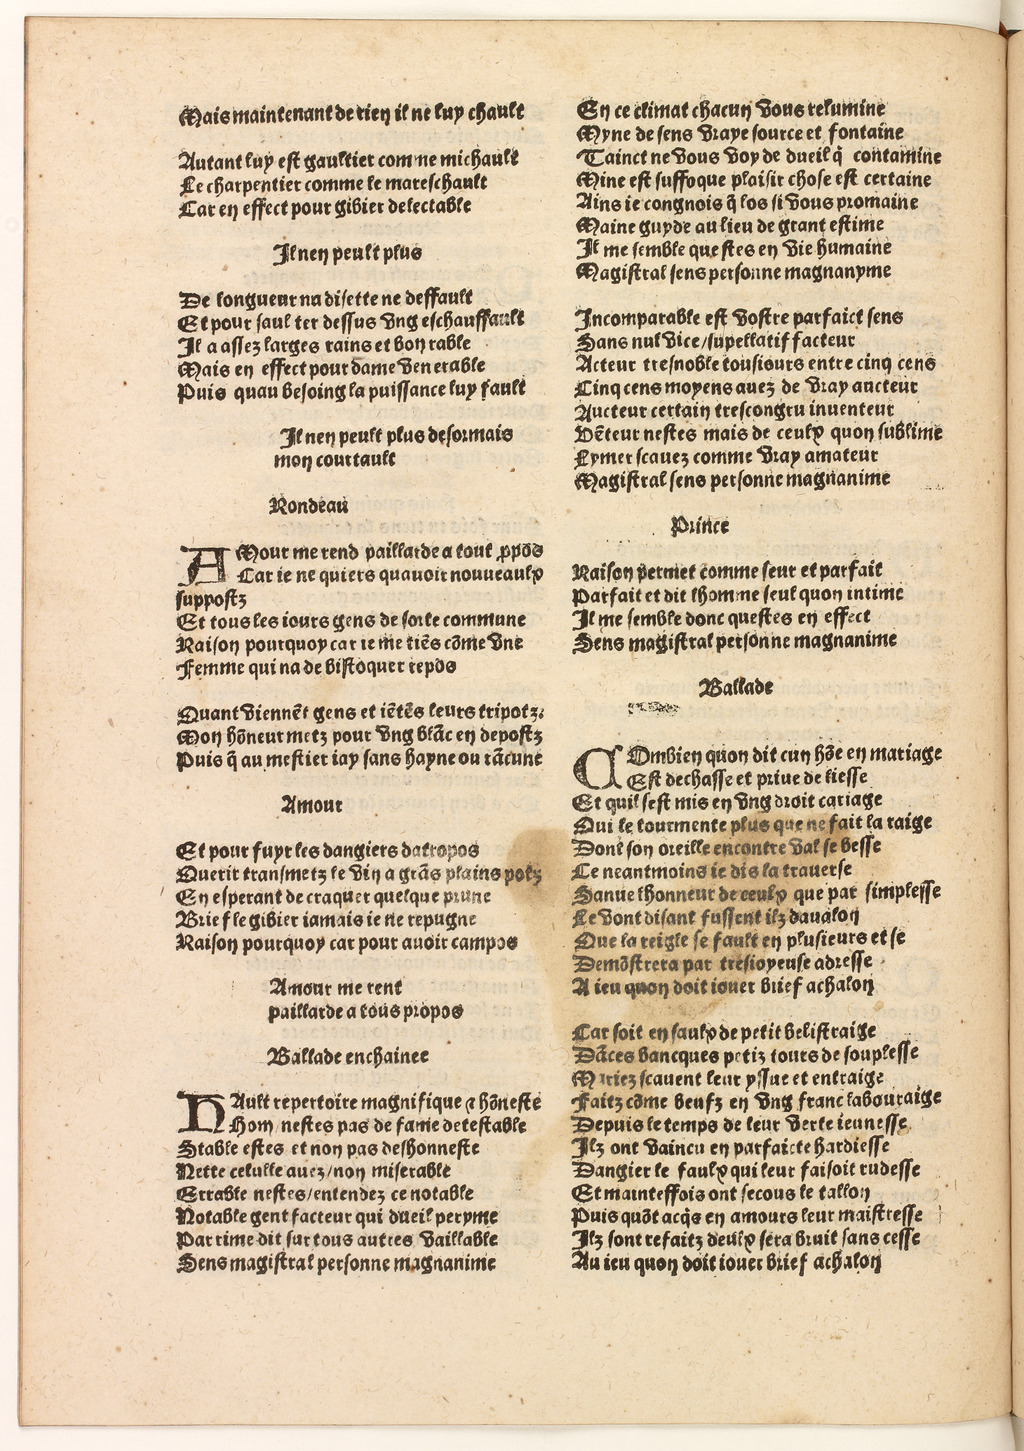 Mais maintenant de rien il ne luy chault
Autant luy est gaultier comme michault
Le charpentier comme le mareschault
Car en effect pour gibier delectable
Il nen peult plus
De longueur na disette ne deffault
Et pour saul ter dessus vng eschauffault
Il a assez larges rains et bon rable
Mais en effect pour dame venerable
Puis quau besoing la puissance luy fault
Il nen peult plus desormais
mon courtault
Rondeau
AMour me rend paillarde a tout ꝓpos
Car ie ne quiers quauoir nouueaulx
suppostz
Et tous les iours gens de sorte commune
Raison pourquoy car ie me tiẽs cõme vne
Femme qui na de bistoquer repos
Quant viennẽt gens et iẽtẽs leurs tripotz
Mon hõneur metz pour vng blãc en depostz
Puis q̃ au mestier iay sans hayne ou rãcune
Amour
Et pour fuyr les dangiers datropos
Querir transmetz le vin a grãs plains potz
En esperant de craquer quelque prune
Brief le gibier iamais ie ne repugne
Raison pourquoy car pour auoir campos
Amour me rent
paillarde a tous propos
Ballade enchainee
HAult repertoire magnifique ⁊ hõneste
Hom nestes pas de fame detestable
Stable estes et non pas deshonneste
Nette celulle auez/non miserable
Errable nestes/entendez ce notable
Notable gent facteur qui dueil peryme
Par rime dit sur tous autres vaillable
Sens magistral personne magnanime
En ce climat chacun vous relumine
Myne de sens vraye source et fontaine
Tainct ne vous voy de dueil q̃ contamine
Mine est suffoque plaisir chose est certaine
Ains ie congnois q̃ los si vous promaine
Maine guyde au lieu de grant estime
Il me semble que stes en vie humaine
Magistral sens personne magnanyme
Incomparable est vostre parfaict sens
Sans nul vice/supellatif facteur
Acteur tresnoble tousiours entre cinq cens
Cinq cens moyens auez de vray aucteur
Aucteur certain trescongru inuenteur
Vẽteur nestes mais de ceulx quon sublime
Lymer scauez comme vray amateur
Magistral sens personne magnanime
Prince
Raison permet comme seur et parfait
Parfait et dit lhomme seul quon intime
Il me semble donc questes en effect
Sens magistral personne magnanime
Ballade
COmbien quon dit cun hõe en mariage
Est dechasse et priue de liesse
Et quil sest mis en vng droit cariage
Qui le tourmente plus que ne fait la raige
Dont son oreille encontre val se besse
Ce neantmoins ie dis la trauerse
Sanue lhonneur de ceulx que par simplesse
Le vont disant fussent ilz daualon
Que la reigle se fault en plusieurs et se
Demõstrera par tresioyeuse adresse
A ieu quon doit iouer brief achalon
Car soit en saulx de petit belistraige
Dãces bancques petiz tours de souplesse
Mariez scauent leur yssue et entraige
Faitz cõme beufz en vng franc labouraige
Depuis le temps de leur verte ieunesse
Ilz ont vaincu en parfaicte hardiesse
Dangier le faulx qui leur faisoit rudesse
Et mainteffois ont secous le tallon
Puis quõt acq̃s en amours leur maistresse
Ilz sont refaitz deulx sera bruit sans cesse
Au ieu quon doit iouer brief achalon